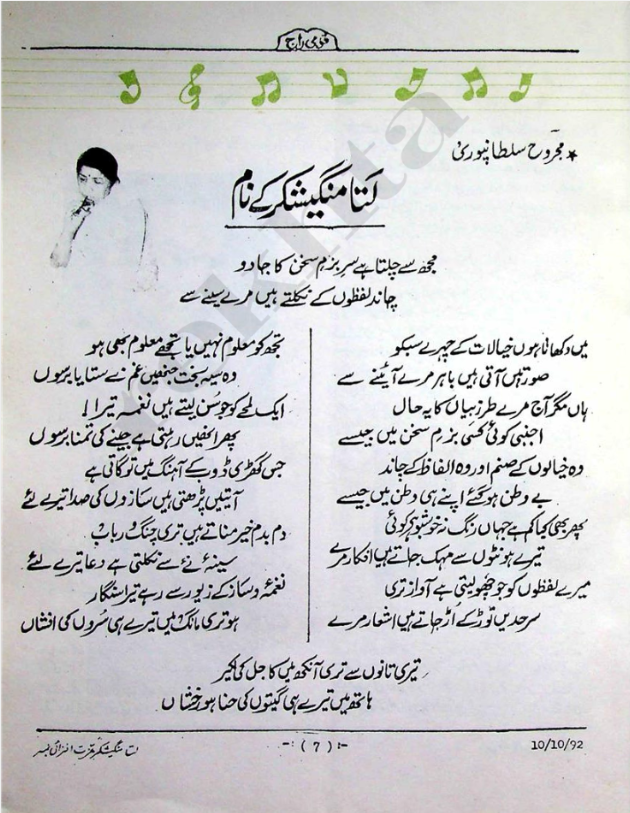 قومی راج
★ مجروح سلطانپوری
لتا منگیشکر کے نام
مجھ سے چلتا ہے سرِ بزمِ سخن کا جادو
چاند لفظوں کے نکلتے ہیں مرے سینے سے
میں دکھاتا ہوں خیالات کے چہرے سب کو
صورتیں آتی ہیں باہر مرے آئینے سے
ہاں مگر آج مرے طرزِ بیاں کا یہ حال
اجنبی کوئی کسی بزمِ سخن میں جیسے
وہ خیالوں کے صنم اور وہ الفاظ کے چاند
بے وطن ہو گئے اپنے ہی وطن میں جیسے
پھر بھی کیا کم ہے جہاں رنگ نہ خوشبو ہے کوئی
تیرے ہونٹوں سے مہک جاتے ہیں افکار مرے
میرے لفظوں کو جو چھو لیتی ہے آواز تری
سرحدیں توڑ کے اُڑ جاتے ہیں اشعار مرے
تجھ کو معلوم نہیں یا تجھے معلوم بھی ہو
وہ سیہ بخت جنھیں غم نے ستایا برسوں
ایک لمحے کو جو سُن لیتے ہیں نغمہ تیرا
پھر انھیں رہتی ہے جینے کی تمنا برسوں
جس گھڑی ڈوب کے آہنگ میں تو گاتی ہے
آیتیں پڑھتی ہیں سازوں کی صدا تیرے لئے
دم بدم خیر مناتے ہیں تری چنگ و رباب
سینۂ نے سے نکلتی ہے دعا تیرے لئے
نغمۂ و ساز کے زیور سے رہے تیرا سنگار
ہو تری مانگ میں تیرے ہی سُروں کی افشاں
تیری تانوں سے تری آنکھ میں کاجل کی لکیر
ہاتھ میں تیرے ہی گیتوں کی حنا ہو رخشاں
10/10/92
-: ( 7 ) :-
لتا منگیشکر عزت افزائی نمبر
rekhta